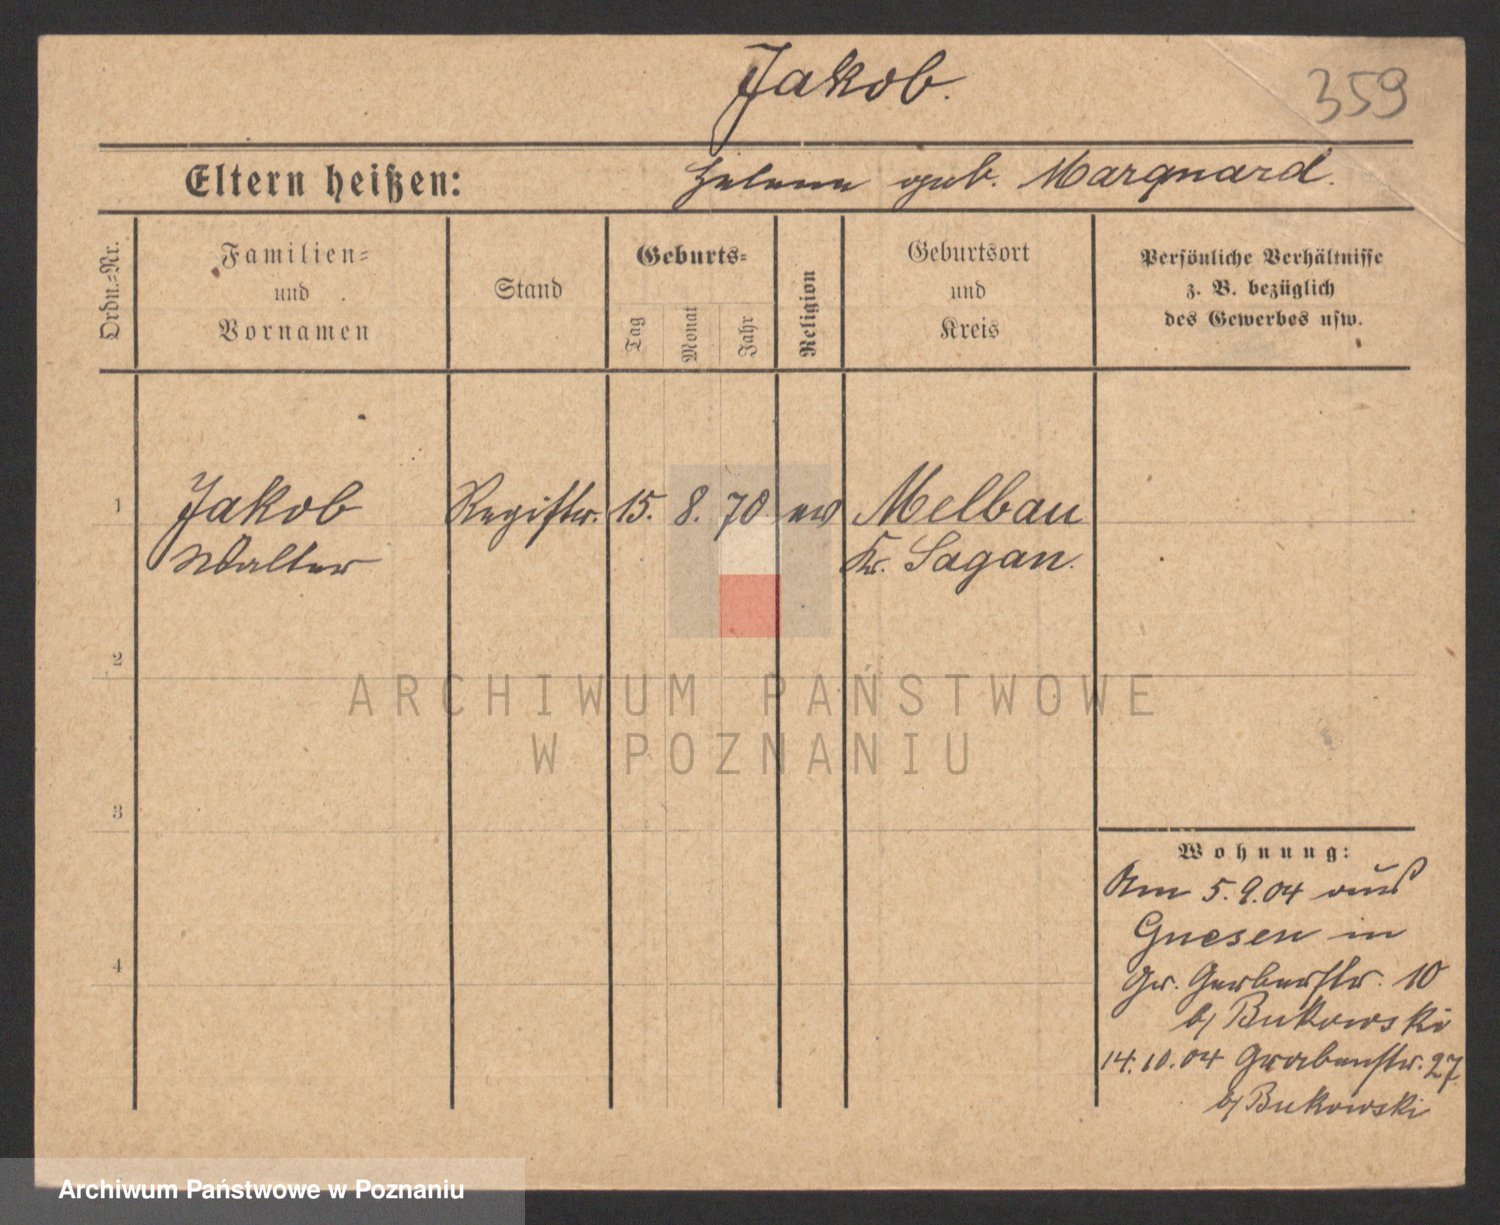 Jakob.
359
Eltern heißen:
Helene geb. Marquard.
Ordn.-Nr.
Familien-
und
Vornamen
Stand
Geburts-
Tag
Monat
Jahr
Religion
Geburtsort
und
Kreis
Persönliche Verhältnisse
z. B. bezüglich
des Gewerbes usw.
1
Jakob
Registr.
15.
8.
70
ev
Melbau
Walter
Kr. Sagan.
2
ARCHIWUM PAŃSTWOWE
W POZNANIU
3
Wohnung:
Am 5.9.04 aus
Gnesen in
4
Gr. Gerberstr. 10
b/ Bukowski
14.10.04 Grabenstr. 27
b/ Bukowski
Archiwum Państwowe w Poznaniu